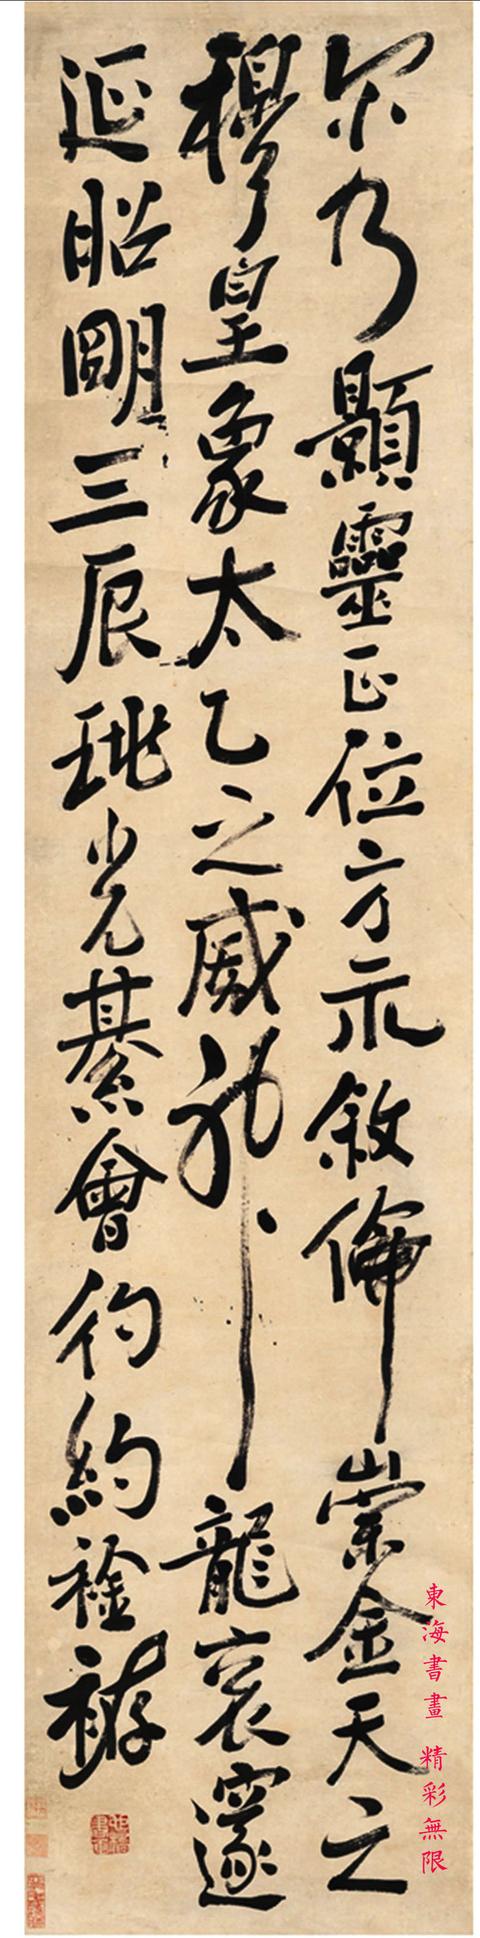 尔乃顥靈正位方示敘倫崇金天之
穆皇象太乙之威神龍袞邃
延昭朙三辰珧光綦會彴約
東海書畫 精彩無限